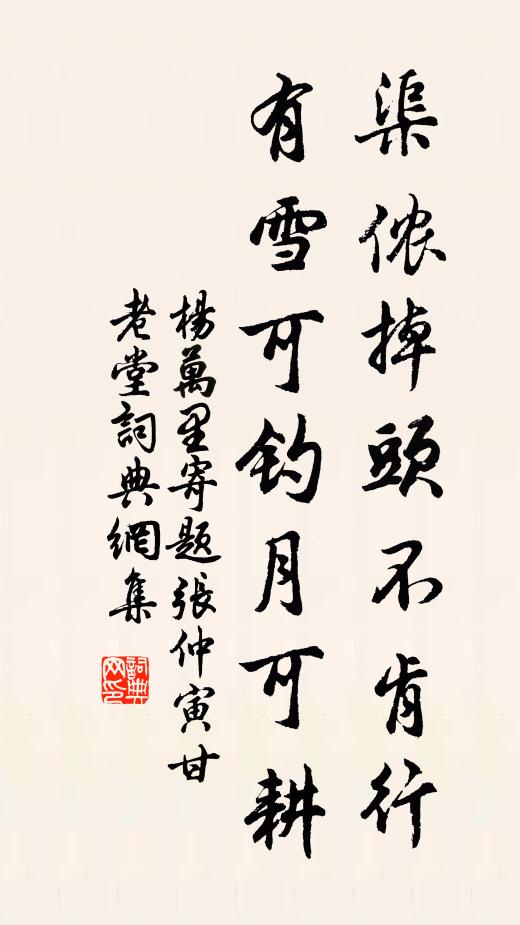 渠侬掉頭不肯行
有雪可钓月可耕
楊萬里寄题張仲寅甘
老堂詞典網集
詞典网印